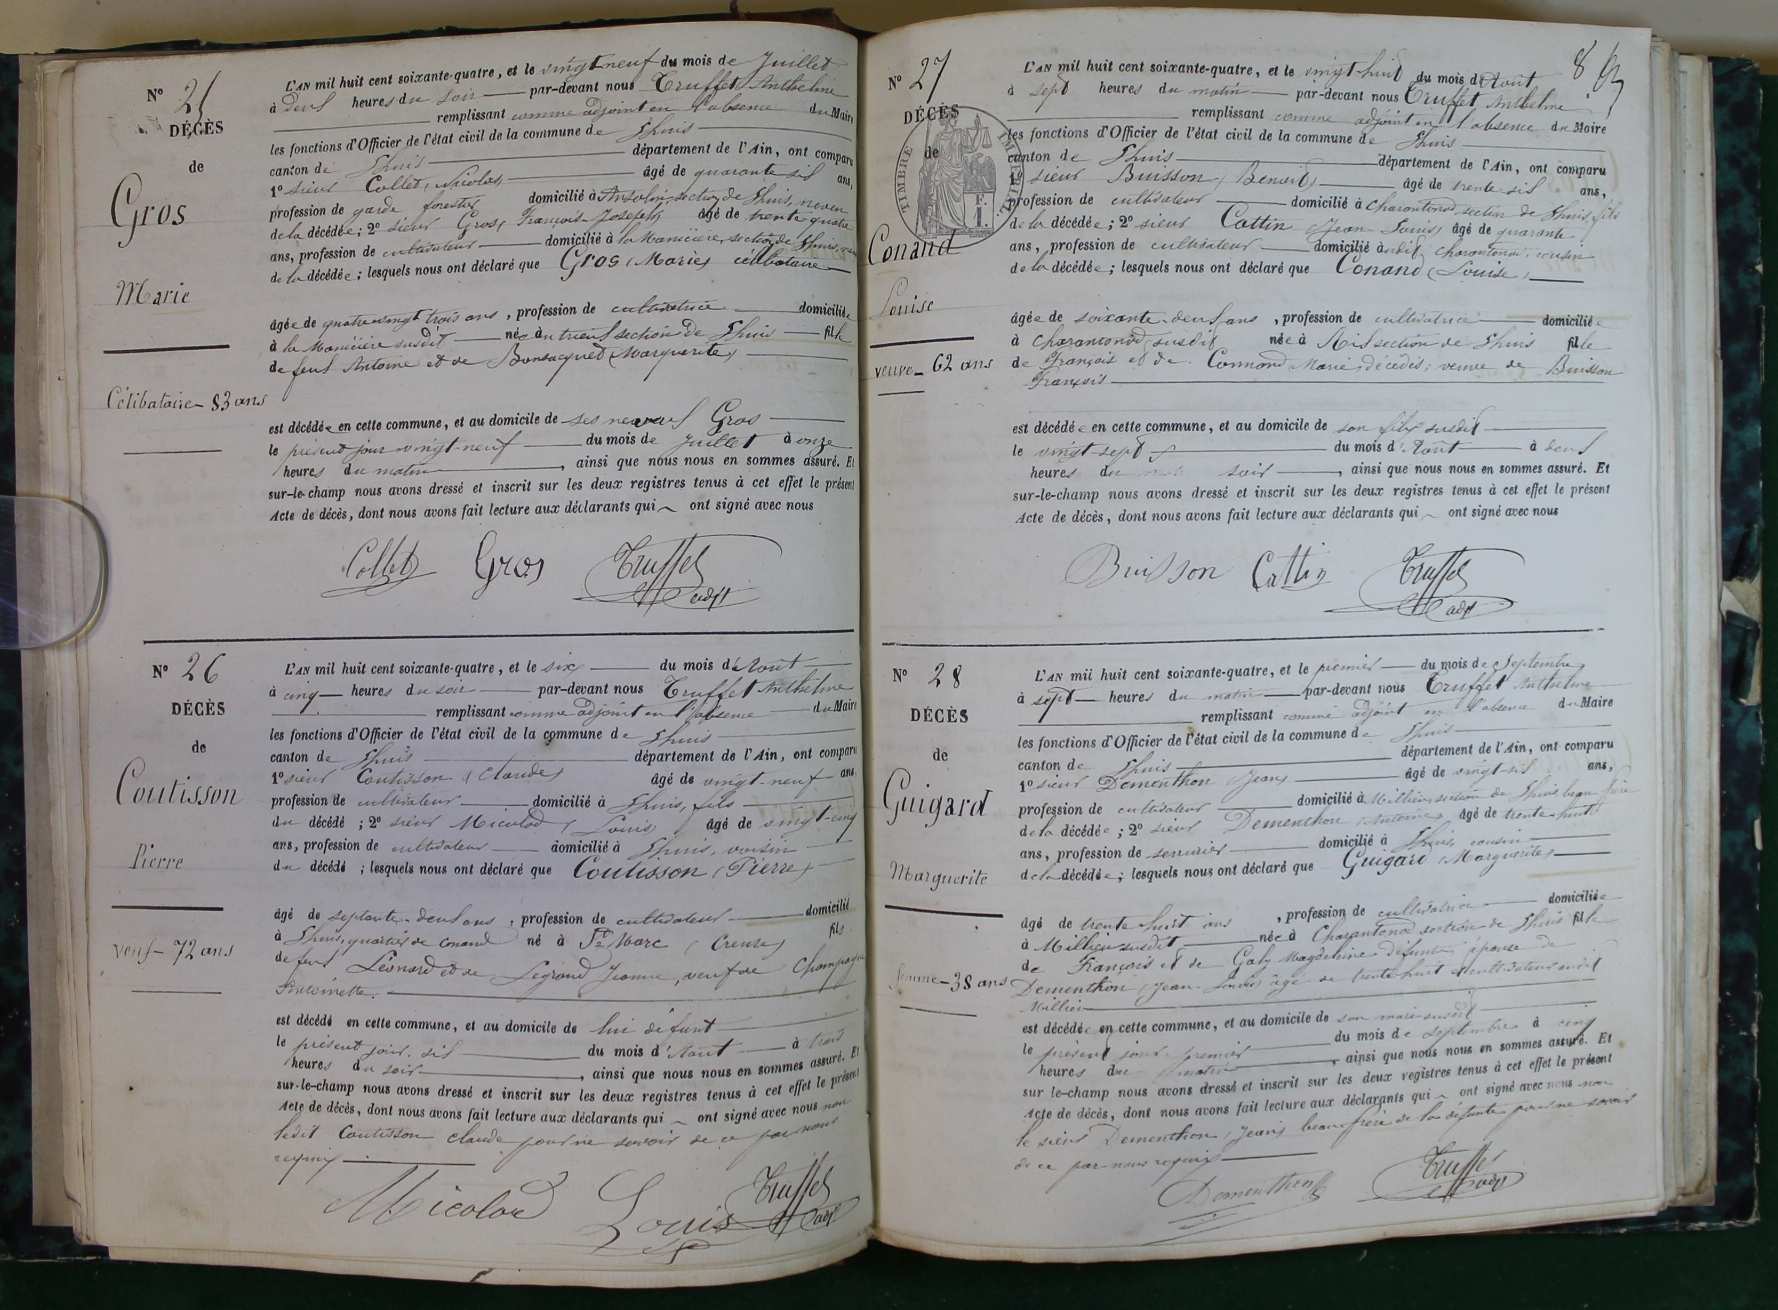 N° 25
DÉCÈS
de
Gros
Marie
Célibataire - 83 ans
L'AN mil huit cent soixante-quatre, et le vingt neuf du mois de Juillet
à deux heures du soir par-devant nous Truffet Anthelme
remplissant comme adjoint en l'absence du Maire
les fonctions d'Officier de l'état civil de la commune de Lhuis
canton de Lhuis département de l'Ain, ont comparu
1° sieur Collet, Nicolas âgé de quarante six ans,
profession de garde forestier domicilié à Ansolin, section de Lhuis, neveu
de la décédée; 2° sieur Gros, François-Joseph, âgé de trente quatre
ans, profession de cultivateur domicilié à la Manicière, section de Lhuis, neveu
de la décédée; lesquels nous ont déclaré que Gros (Marie) célibataire
âgée de quatre vingt trois ans, profession de cultivatrice domiciliée
à la Manicière susdit née au section de Lhuis fille
de feus Antoine et de (Marguerite)
est décédée en cette commune, et au domicile de ses neveux Gros
le présent jour vingt-neuf du mois de Juillet à onze
heures du matin, ainsi que nous nous en sommes assuré. Et
sur-le-champ nous avons dressé et inscrit sur les deux registres tenus à cet effet le présent
Acte de décès, dont nous avons fait lecture aux déclarants qui ont signé avec nous
Collet Gros Truffet
adjt
N° 26
DÉCÈS
de
Coutisson
Pierre
veuf - 72 ans
L'AN mil huit cent soixante-quatre, et le six du mois d'Août
à cinq heures du soir par-devant nous Truffet Anthelme
remplissant comme adjoint en l'absence du Maire
les fonctions d'Officier de l'état civil de la commune de Lhuis
canton de Lhuis département de l'Ain, ont comparu
1° sieur Coutisson (Claude) âgé de vingt-neuf ans
profession de cultivateur domicilié à Lhuis, fils
du décédé; 2° sieur Micolod (Louis) âgé de vingt-cinq
ans, profession de cultivateur domicilié à Lhuis, voisin
du décédé; lesquels nous ont déclaré que Coutisson (Pierre)
âgé de septante-deux ans, profession de cultivateur domicilié
à Lhuis, quartier de Conand né à St Marc (Creuse) fils
de feus Léonard et de Legrand Jeanne, veuf de Champagne
Antoinette.
est décédé en cette commune, et au domicile de lui défunt
le présent jour, six du mois d'Août à trois
heures du soir, ainsi que nous nous en sommes assuré. Et
sur-le-champ nous avons dressé et inscrit sur les deux registres tenus à cet effet le présent
Acte de décès, dont nous avons fait lecture aux déclarants qui ont signé avec nous non
ledit Coutisson Claude pour ne savoir de ce par nous
requis
Micolod Louis Truffet
adjt
8
N° 27
DÉCÈS
de
TIMBRE IMPERIAL
1 F.
Conand
Louise
veuve - 62 ans
L'AN mil huit cent soixante-quatre, et le vingt-huit du mois d'Août
à sept heures du matin par-devant nous Truffet Anthelme
remplissant comme adjoint en l'absence du Maire
les fonctions d'Officier de l'état civil de la commune de Lhuis
canton de Lhuis département de l'Ain, ont comparu
1° sieur Buisson (Benoit) âgé de trente six ans,
profession de cultivateur domicilié à Charantonod, section de Lhuis, fils
de la décédée; 2° sieur Cattin (Jean Louis) âgé de quarante
ans, profession de cultivateur domicilié audit Charantonod, cousin
de la décédée; lesquels nous ont déclaré que Conand (Louise)
âgée de soixante-deux ans, profession de cultivatrice domiciliée
à Charantonod susdit née à Rix section de Lhuis fille
de François et de Connord Marie, décédés; veuve de Buisson
François
est décédée en cette commune, et au domicile de son fils susdit
le vingt-sept du mois d'Août à deux
heures du soir, ainsi que nous nous en sommes assuré. Et
sur-le-champ nous avons dressé et inscrit sur les deux registres tenus à cet effet le présent
Acte de décès, dont nous avons fait lecture aux déclarants qui ont signé avec nous
Buisson Cattin Truffet
adjt
N° 28
DÉCÈS
de
Guigard
Marguerite
femme - 38 ans
L'AN mil huit cent soixante-quatre, et le premier du mois de Septembre
à sept heures du matin par-devant nous Truffet Anthelme
remplissant comme adjoint en l'absence du Maire
les fonctions d'Officier de l'état civil de la commune de Lhuis
canton de Lhuis département de l'Ain, ont comparu
1° sieur Dementhon (Jean) âgé de vingt-six ans,
profession de cultivateur domicilié à Millieu, section de Lhuis, beau-frère
de la décédée; 2° sieur Dementhon, Antoine, âgé de trente-huit
ans, profession de serrurier domicilié à Lhuis, cousin
de la décédée; lesquels nous ont déclaré que Guigard (Marguerite)
âgé de trente huit ans, profession de cultivatrice domiciliée
à Millieu susdit née à Charantonod section de Lhuis fille
de François et de Galy Magdeleine défunts épouse de
Dementhon (Jean-Louis) âgé de trente-huit cultivateur audit
Millieu
est décédée en cette commune, et au domicile de son mari susdit
le présent jour premier du mois de septembre à cinq
heures du matin, ainsi que nous nous en sommes assuré. Et
sur le-champ nous avons dressé et inscrit sur les deux registres tenus à cet effet le présent
Acte de décès, dont nous avons fait lecture aux déclarants qui ont signé avec nous non
le sieur Dementhon (Jean) beau-frère de la défunte pour ne savoir
de ce par nous requis
Dementhon Truffet
adjt